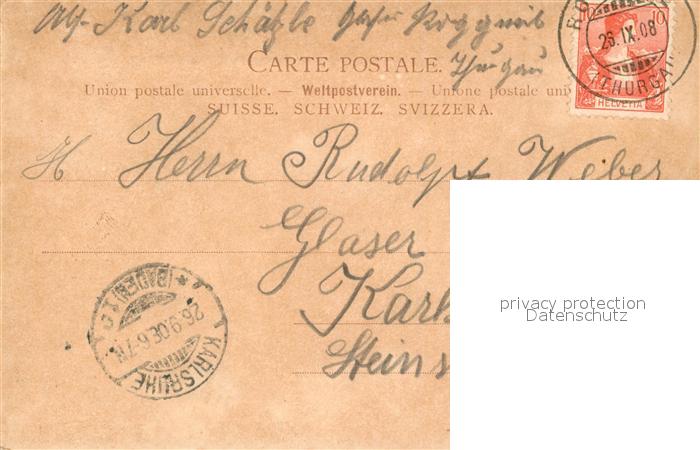 Karl Schätzle
CARTE POSTALE.
Thurgau
Union postale universelle. — Weltpostverein. — Unione postale uni
SUISSE. SCHWEIZ. SVIZZERA.
10 10
HELVETIA
26.IX.08
(THURGAU)
H Herrn Rudolph Weber
Glaser
Karls
Steins
KARLSRUHE
(BADEN)
26.9.08.6-7N.
privacy protection
Datenschutz